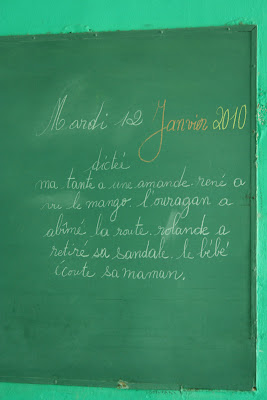 Mardi 12 Janvier 2010
dicteé
ma tante a une amande. rené a
vu le mango. l'ouragan a
abîmé la route. rolande a
retiré sa sandale. le bébé
écoute sa maman.